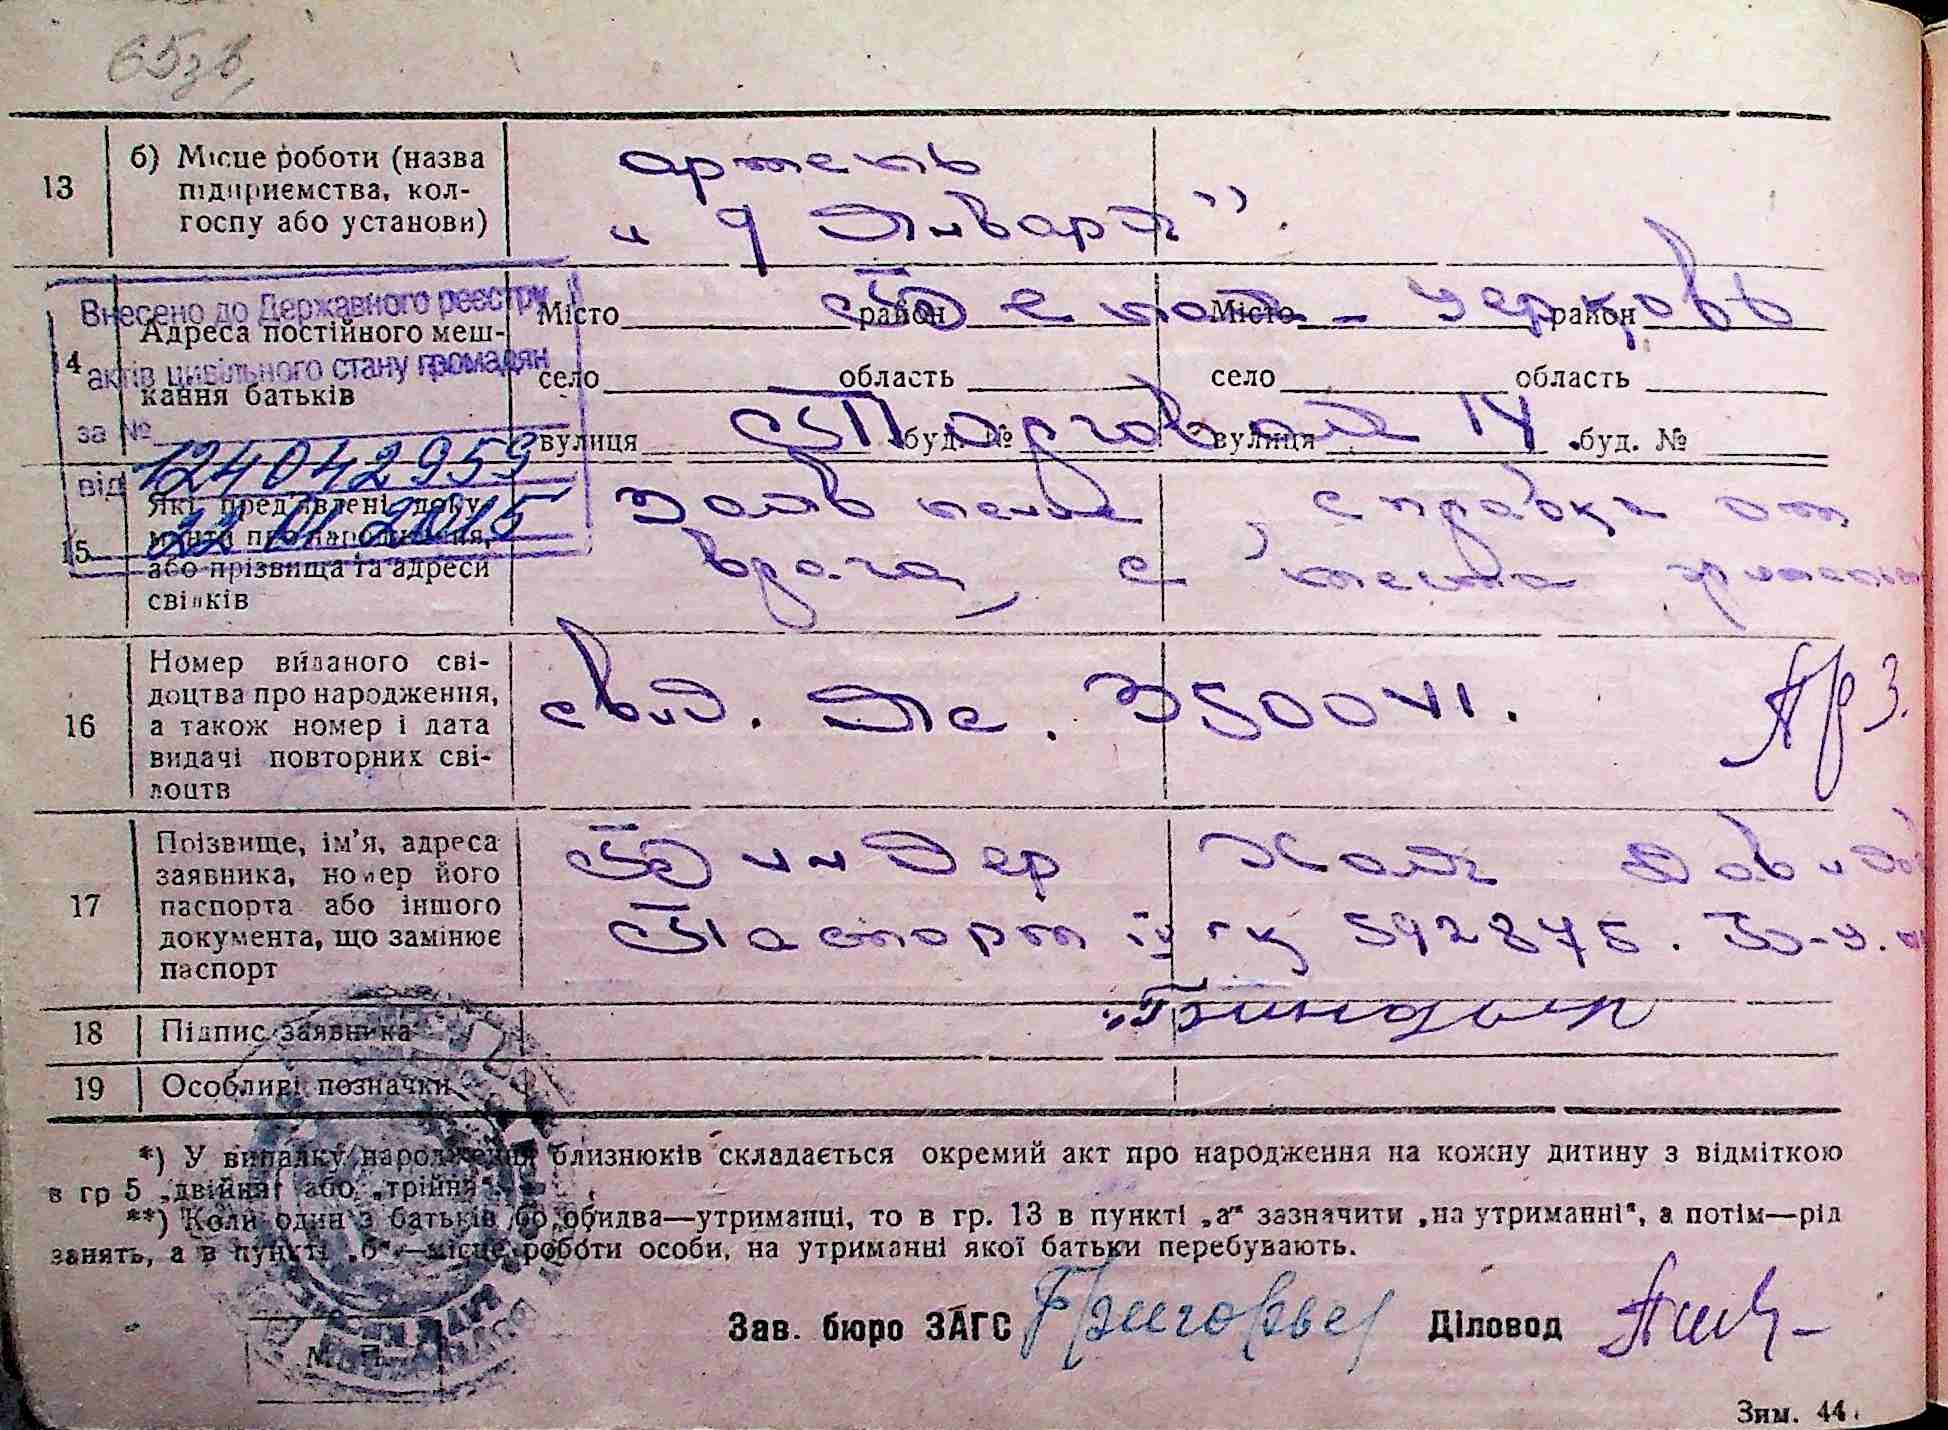 65зв,
13
б) Місце роботи (назва
підприємства, кол-
госпу або установи)
артель
„ 9 Января”.
4
Адреса постійного меш-
кання батьків
Місто район Місто район
Бело - Церковь
село область село область
вулиця буд. № вулиця буд. №
Торговая
Внесено до Державного реєстру
актів цивільного стану громадян
за № 124042959
від 22 01 2015
15
Які пред'явлені доку-
менти про народження,
або прізвища та адреси
свідків
, справка от
врача, с места
16
Номер виданого сві-
доцтва про народження,
а також номер і дата
видачі повторних сві-
доцтв
свид. Яс.
17
Прізвище, ім'я, адреса
заявника, номер його
паспорта або іншого
документа, що замінює
паспорт
Биндер Хая Давид
Паспорт IV
18
Підпис заявника
Биндер
19
Особливі позначки
*) У випадку народження близнюків складається окремий акт про народження на кожну дитину з відміткою
в гр 5 „двійня“ або „трійня“.
**) Коли один з батьків або обидва—утриманці, то в гр. 13 в пункті „а“ зазначити „на утриманні“, а потім—рід
занять, а в пункті „б“—місце роботи особи, на утриманні якої батьки перебувають.
Зав. бюро ЗАГС Діловод
М. П.
Зим. 44